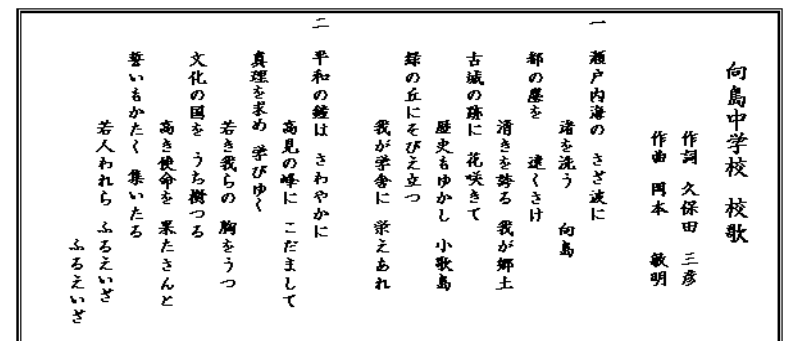 向島中学校 校歌
作詞 久保田 三彦
作曲 岡本 敏明
一 瀬戸内海の さざ波に
渚を洗う 向島
都の塵を 遠くさけ
清きを誇る 我が郷土
古城の跡に 花咲きて
歴史もゆかし 小歌島
緑の丘にそびえ立つ
我が学舎に 栄えあれ
二 平和の鐘は さわやかに
高見の峰に こだまして
真理を求め 学びゆく
若き我らの 胸をうつ
文化の国を うち樹つる
高き使命を 果たさんと
誓いもかたく 集いたる
若人われら ふるえいざ
ふるえいざ